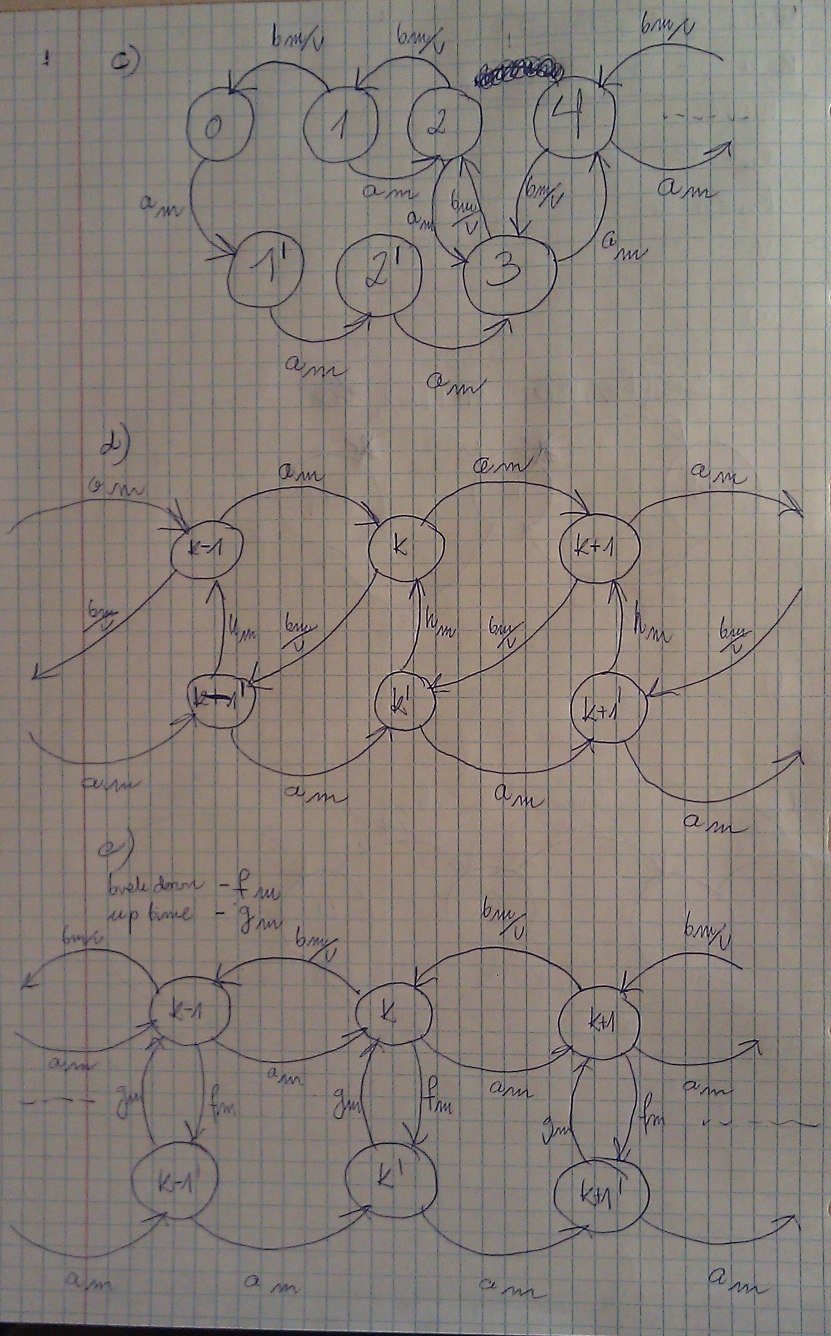 c)
bm/v bm/v bm/v
0 1 2 4
am am am bm/v bm/v am
1' 2' 3 am
am am
d)
am am am am
k-1 k k+1
bm/v hm bm/v hm bm/v hm bm/v
k-1' k' k+1'
am am am am
e)
break down - fm
up time - gm
bm/v bm/v bm/v bm/v
k-1 k k+1
am am am am
gm fm gm fm gm fm
k-1' k' k+1'
am am am am